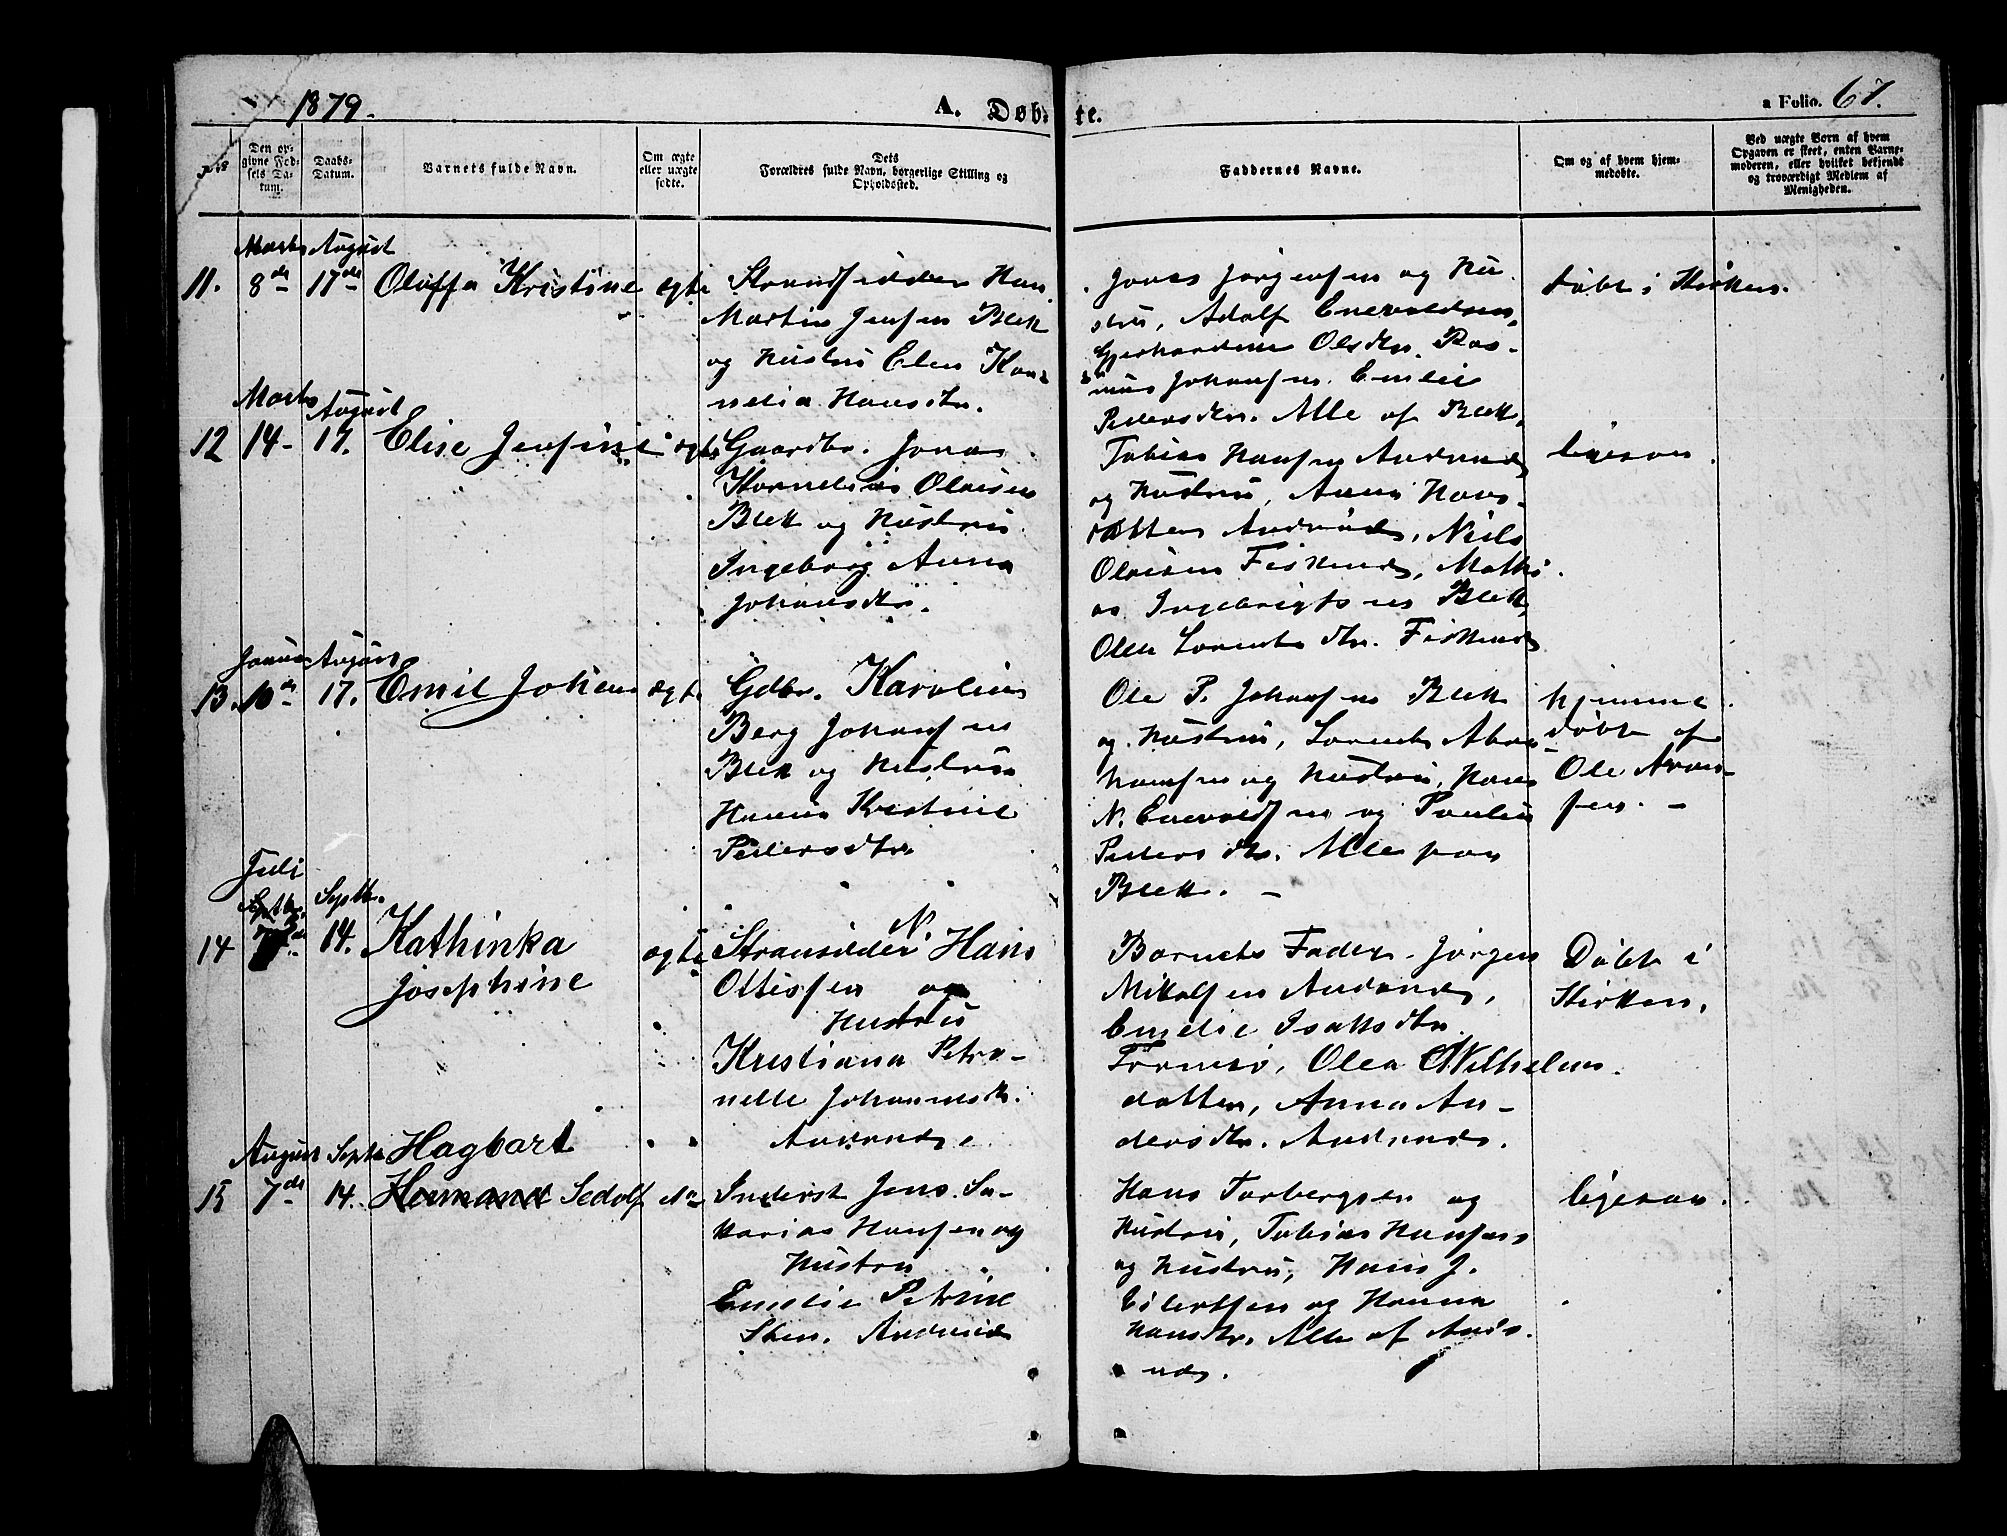 1879.
A. Døbte.
a Folio. 67.
Den opgivne Fødsels Datum.
Daabs-Datum.
Barnets fulde Navn.
Om ægte eller uægte fødte.
Dets Forældres fulde Navn, borgerlige Stilling og Opholdssted.
Faddernes Navne.
Om og af hvem hjemmedøbte.
Ved uægte Børn af hvem Opgaven er skeet, enten Barnemoderen, eller hvilket bekjendt og troværdigt Medlem af Menigheden.
Marts August
11. 8de 17de Oluffa Kristine ægte
Strandsidder Han
Martin Jensen Blek
og Hustru Elen Kor
nelia Hansdtr.
Jonas Jørgensen og Hu
stru, Adolf Enevoldsen,
Gjerhardine Olsdtr. Ras-
mus Johansen. Emelie
Pedersdtr. Alle af Blek.
døbt i Kirken.
Marts August
12 14- 17. Elise Jensine ægte
Gaardbr. Jonas
Kornelius Olaisen
Blek og Hustru
Ingeborg Anna
Johansdtr.
Tobias Hansen
og Hustru, Anna Hans-
datter, Niels
Olaisen, Mathi
as Ingebrigtsen Blek,
Olea Lorentsdtr.
ligesaa.
Januar August
13. 10de 17. Emil Johan ægte
Gdbr. Karolius
Berg Johansen
Blek og Hustru
Hanna Kristine
Pedersdtr
Ole P. Johansen Blek
og Hustru, Lorents Abra
hamsen og Hustru, Hans
N. Enevoldsen og Pauline
Pedersdtr. Alle paa
Blek. -
hjemme
døbt af
Ole Aron-
sen. -
Juli
Septbr. Septb.
14 14. Kathinka ægte
Josephine
Strandsidder Hans N.
Ottisen og
Hustru
Kristiana Petro-
nelle Johannesdtr.
Barnets Fader. Jørgen
Mikalsen
Emelie Isaksdtr.
Olea Wilhelm.
datter, Anna An-
dersdtr.
Døbt i
Kirken.
August Septb Hagbart
15 7de 14. Hermand Sedolf
Inderst Jens Sa-
karias Hansen og
Hustru
Emelie Petrine
Hans Torbergsen og
Hustru, Tobias Hansen
og Hustru, Hans J.
Eilertsen og Hanna
Hansdtr. Alle af
ligesaa.